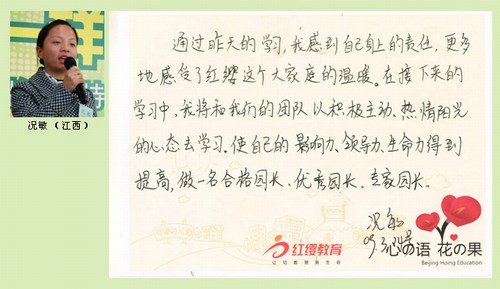 况敏（江西）
通过昨天的学习,我感到自己身上的责任,更多
地感受了红缨这个大家庭的温暖。在接下来的
学习中,我将和我们的团队以积极主动、热情阳光
的心态去学习,使自己的影响力、领导力、生命力得到
提高,做一名合格园长、优秀园长、专家园长。
况敏
红缨教育
心の语 花の果
Beijing Hoing Education